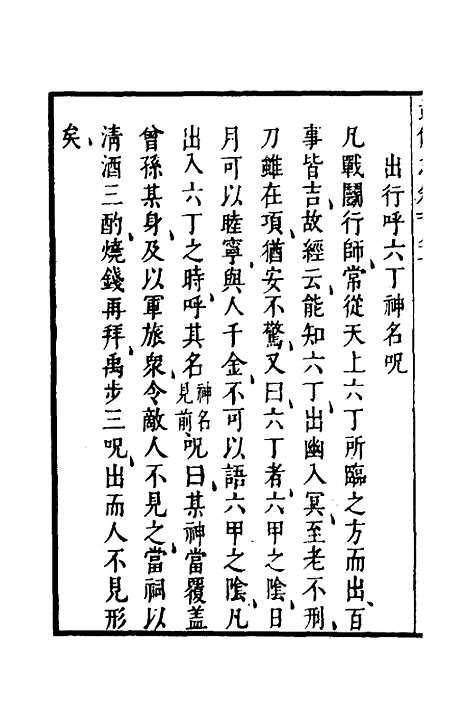 出行呼六丁神名呪
凡戰鬬行師常從天上六丁所臨之方而出百
事皆吉故經云能知六丁出幽入冥至老不刑
刀雖在項猶安不驚又曰六丁者六甲之陰日
月可以睦寧與人千金不可以語六甲之陰凡
出入六丁之時呼其名神名見前呪曰某神當覆蓋
曾孫某身及以軍旅衆令敵人不見之當祠以
清酒三酌燒錢再拜禹步三呪出而人不見形
矣